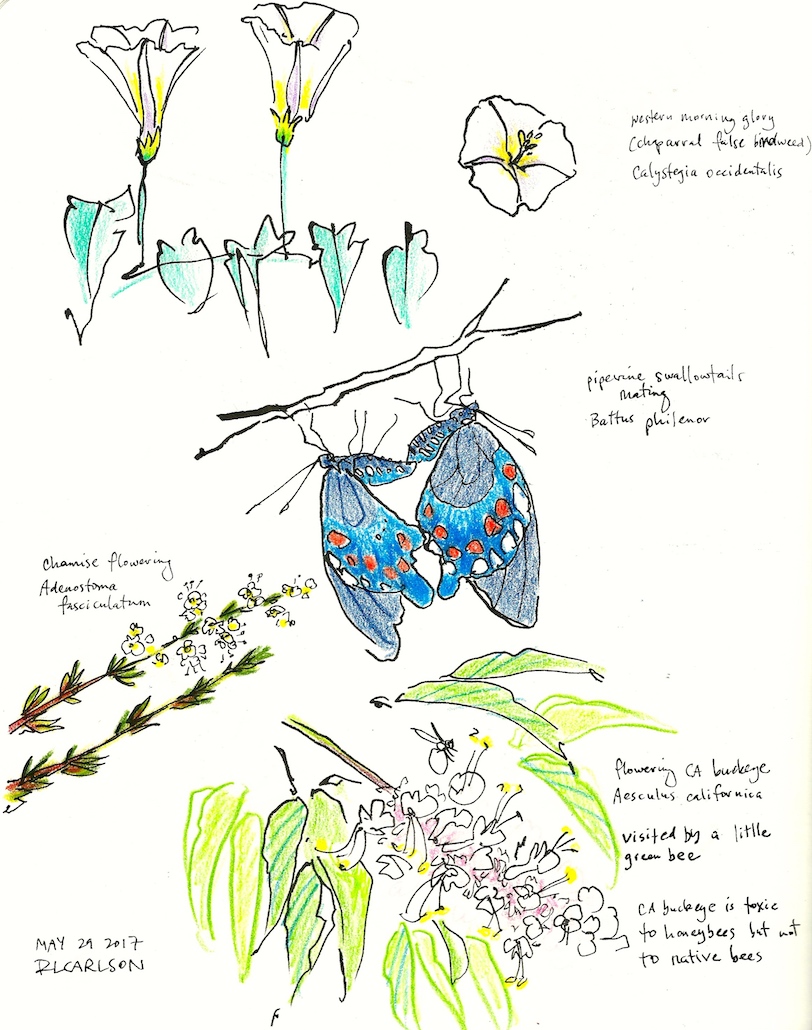 western morning glory
(chaparral false bindweed)
Calystegia occidentalis
pipevine swallowtails
mating
Battus philenor
chamise flowering
Adenostoma
fasciculatum
flowering CA buckeye
Aesculus californica
visited by a little
green bee
CA buckeye is toxic
to honeybees but not
to native bees
MAY 29 2017
RLCARLSON